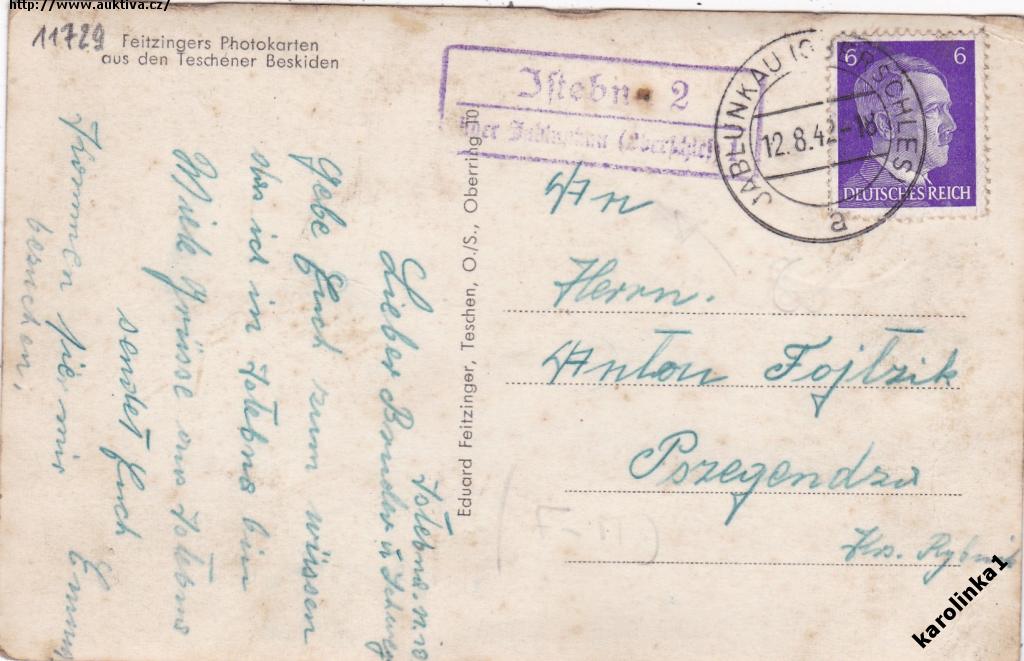 http://www.auktiva.cz/
11729
Feitzingers Photokarten
aus den Teschener Beskiden
Istebna 2
über Jablunkau (Oberschles.)
JABLUNKAU (OBERSCHLES)
12.8.42-18
a
6 6
DEUTSCHES REICH
Eduard Feitzinger, Teschen, O./S., Oberring 10
Istebna
Lieber Bruder u Schweg
gebe Euch zum wissen
das ich in Istebna bin
Viele Grüsse aus Istebna
sendet Euch
Kommen hier mir
besuchen,
An
Herrn.
Anton Fojtzik
Pszegendza
Krs. Rybnik
karolinka1